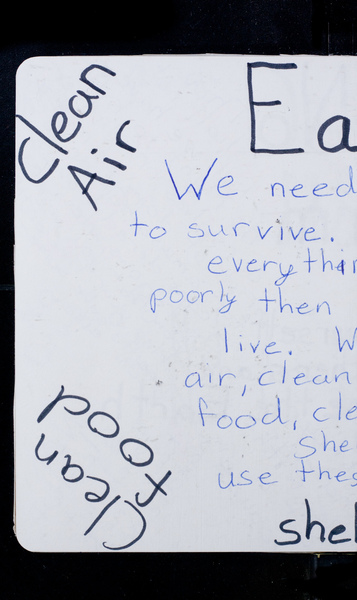 Clean
Air
Ea
We need
to survive.
everythin
poorly then
live. W
air, clean
food, cle
She
use thes
Clean
food
shel